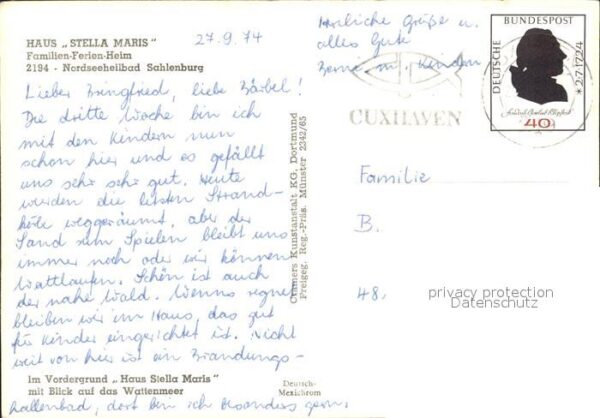 HAUS „STELLA MARIS"
Familien-Ferien-Heim
2194 - Nordseeheilbad Sahlenburg
27.9.74
Lieber Burgfried, liebe Bärbel!
Die dritte Woche bin ich
mit den Kindern nun
schon hier und es gefällt
uns sehr sehr gut. Heute
werden die letzten Strand-
körbe weggeräumt, aber der
Sand zum Spielen bleibt uns
immer noch oder wir können
Wattlaufen. Schön ist auch
der nahe Wald. Wenns regnet
bleiben wir im Haus, das gut
für Kinder eingerichtet ist. Nicht
weit von hier ist ein Brandungs-
hallenbad, dort bin ich besonders gern,
Im Vordergrund „Haus Stella Maris"
mit Blick auf das Wattenmeer
Deutsch-
Mexichrom
Cramers Kunstanstalt KG, Dortmund
Freigeg. Reg.-Präs. Münster 2342/65
Herzliche Grüße u.
alles Gute
m. Kinder
CUXHAVEN
DEUTSCHE
BUNDESPOST
* 2·7·1724
40
Familie
B.
48.
privacy protection
Datenschutz